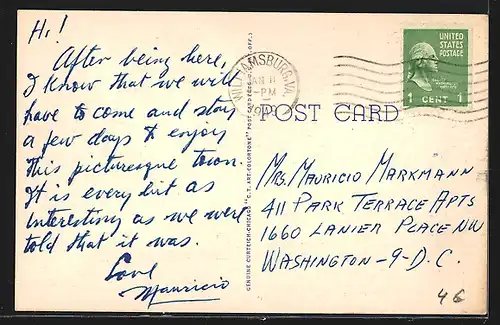 Hi!
After being here,
I know that we will
have to come and stay
a few days to enjoy
this picturesque town.
It is every bit as
interesting as we were
told that it was.
Love
Mauricio
GENUINE CURTEICH-CHICAGO "C.T. ART-COLORTONE" POST CARD
WILLIAMSBURG, VA.
PM
UNITED
STATES
POSTAGE
1 CENT 1
POST CARD
Mrs. Mauricio Markmann
411 Park Terrace Apts
1660 Lanier Place NW
Washington-9-D.C.
46